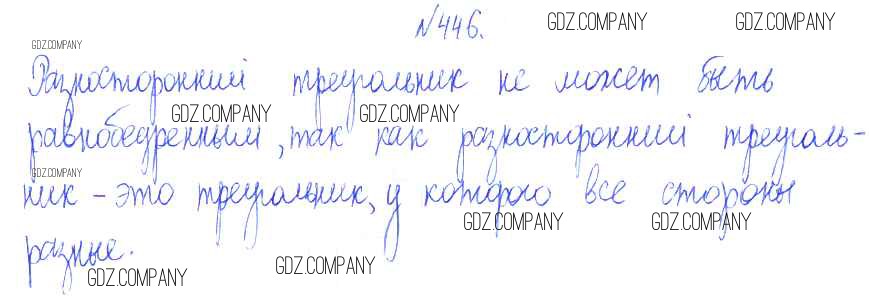 №446.
GDZ.COMPANY GDZ.COMPANY
GDZ.COMPANY
Разносторонний треугольник не может быть
GDZ.COMPANY GDZ.COMPANY
равнобедренным, так как разносторонний треуголь-
GDZ.COMPANY
ник - это треугольник, у которого все стороны
GDZ.COMPANY GDZ.COMPANY
разные.
GDZ.COMPANY GDZ.COMPANY